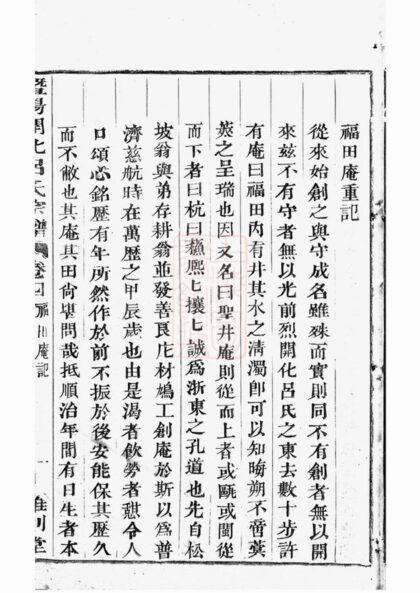 福田庵重記
從來始創之與守成名雖殊而實則同不有創者無以開
來玆不有守者無以光前烈開化呂氏之東去數十步許
有庵曰福田內有井其水之淸濁卽可以知晦朔不啻蓂
莢之呈瑞也因又名曰聖井庵則從而上者或甌或閩從
而下者曰杭曰蘇熙匕攘匕誠爲浙東之孔道也先自松
坡翁與弟存耕翁並發善良庀材鳩工創庵於斯以爲普
濟慈航時在萬歷之甲辰歲也由是渴者飮勞者憇令人
口頌必銘歷有年所然作於前不振於後安能保其歷久
而不敝也其庵其田尙堪問哉抵順治年間有日生者本
暨陽開化呂氏宗譜 卷四 福田庵記 一